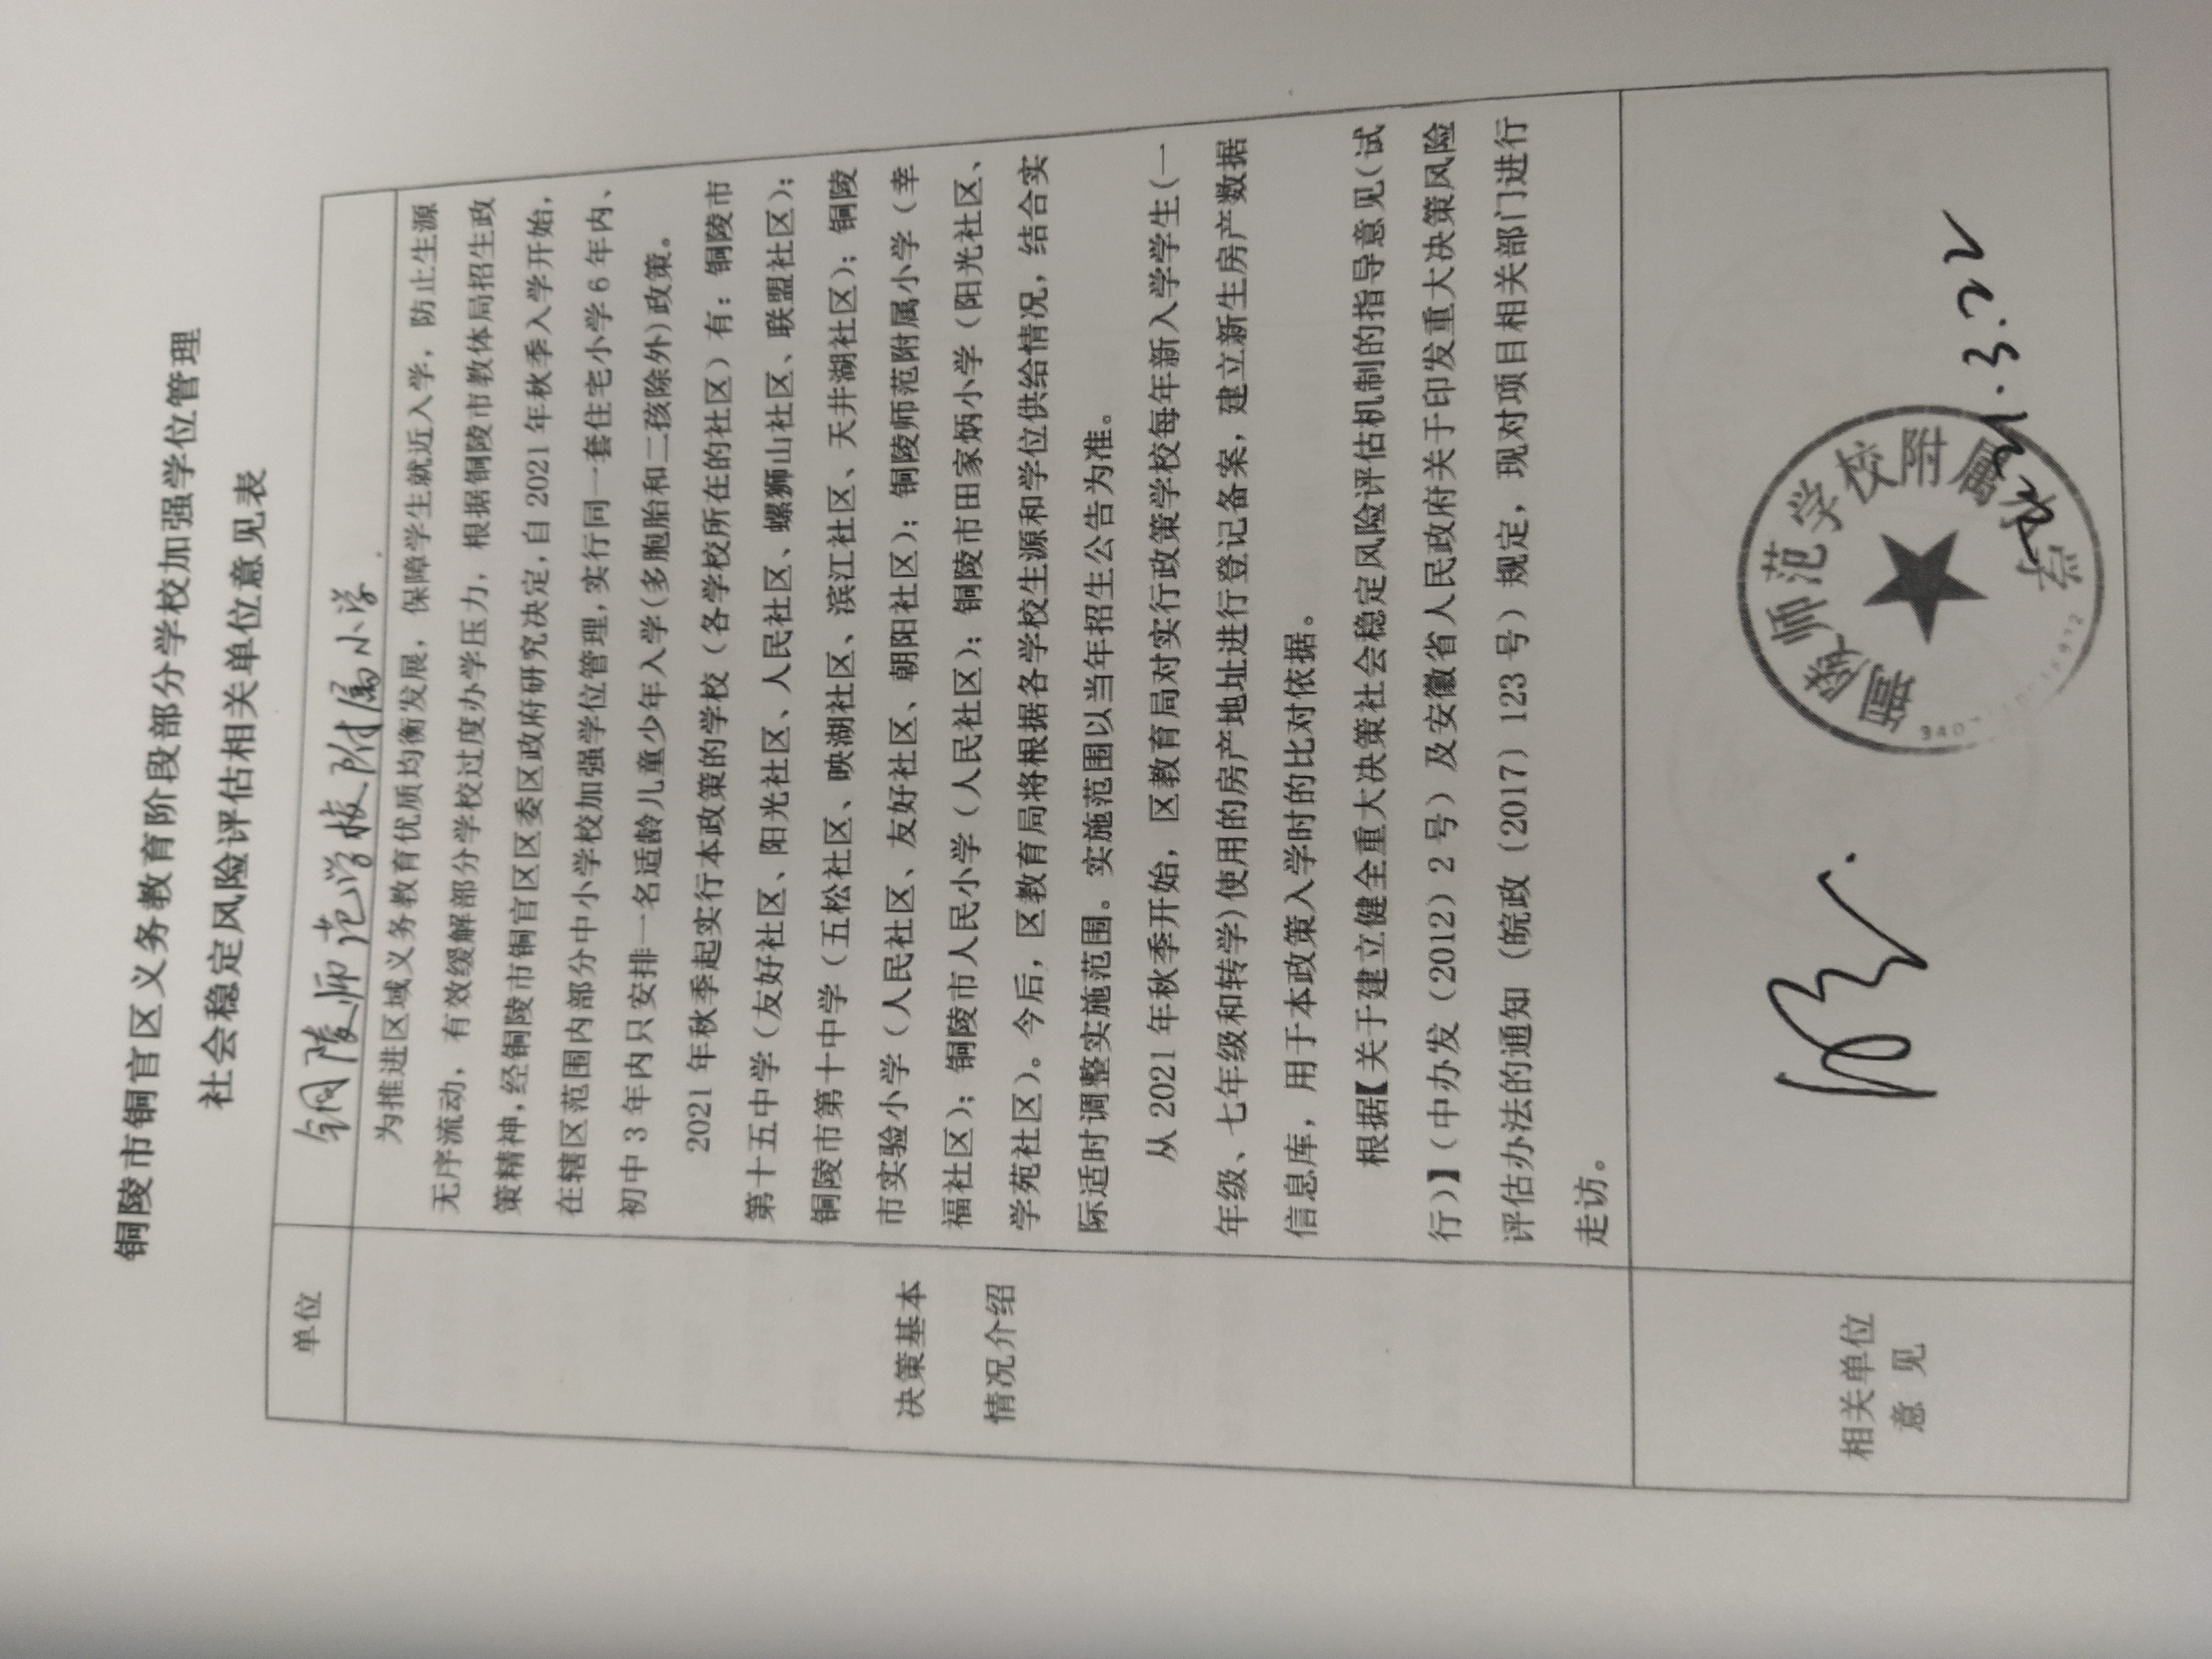 铜陵市铜官区义务教育阶段部分学校加强学位管理
社会稳定风险评估相关单位意见表
单位
铜陵师范学校附属小学
为推进区域义务教育优质均衡发展，保障学生就近入学，防止生源
无序流动，有效缓解部分学校过度办学压力，根据铜陵市教体局招生政
策精神,经铜陵市铜官区区委区政府研究决定,自2021年秋季入学开始,
在辖区范围内部分中小学校加强学位管理,实行同一套住宅小学6年内、
初中3年内只安排一名适龄儿童少年入学(多胞胎和二孩除外)政策。
2021年秋季起实行本政策的学校（各学校所在的社区）有：铜陵市
第十五中学（友好社区、阳光社区、人民社区、螺狮山社区、联盟社区）；
铜陵市第十中学（五松社区、映湖社区、滨江社区、天井湖社区）；铜陵
市实验小学（人民社区、友好社区、朝阳社区）；铜陵师范附属小学（幸
福社区）；铜陵市人民小学（人民社区）；铜陵市田家炳小学（阳光社区、
学苑社区）。今后，区教育局将根据各学校生源和学位供给情况，结合实
际适时调整实施范围。实施范围以当年招生公告为准。
从2021年秋季开始，区教育局对实行政策学校每年新入学学生(一
年级、七年级和转学)使用的房产地址进行登记备案，建立新生房产数据
信息库，用于本政策入学时的比对依据。
根据【关于建立健全重大决策社会稳定风险评估机制的指导意见(试
行)】（中办发（2012）2号）及安徽省人民政府关于印发重大决策风险
评估办法的通知（皖政（2017）123号）规定，现对项目相关部门进行
走访。
决策基本
情况介绍
相关单位
意 见
铜陵师范学校附属小学
2021.3.22